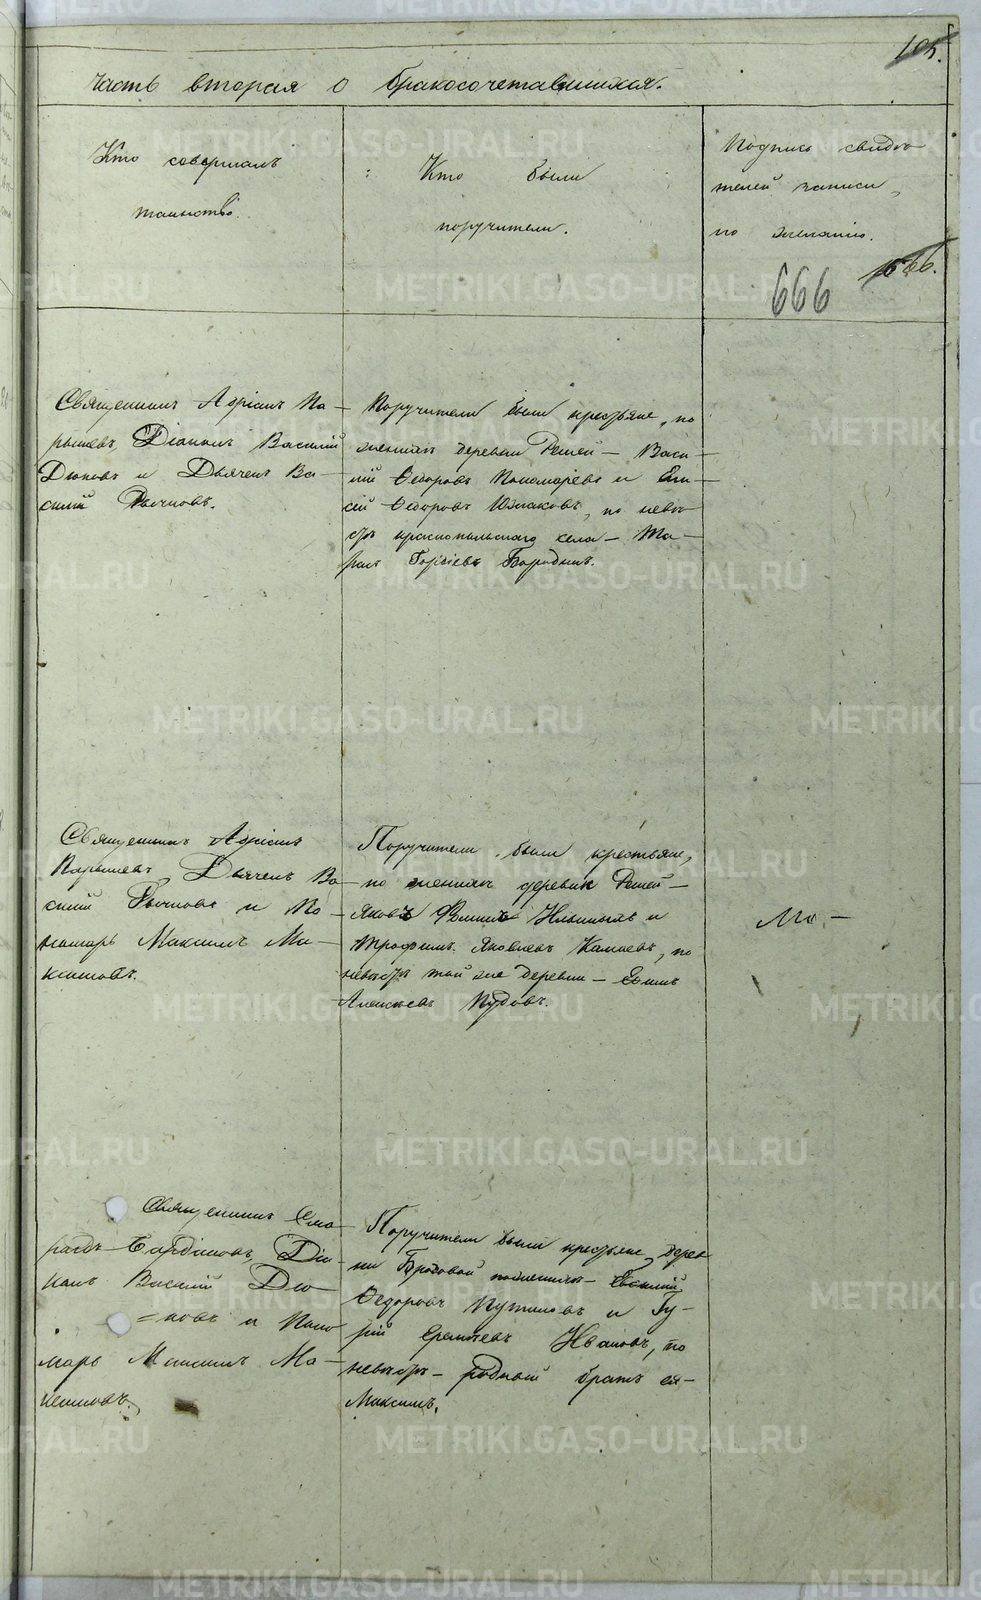 105.
часть вторая о бракосочетавшихся.
Кто совершалъ
таинство.
Кто были
поручители.
Подпись свидѣ-
телей записи,
по желанію.
666
Священникъ Адріанъ Па-
рышевъ, Діаконъ Василій
Дюковъ и Дьячекъ Ва-
силій Рычковъ.
Поручители были крестьяне, по
женихѣ деревни Решей - Васи-
лій Ѳедоровъ Пономаревъ и Ели-
сей Ѳедоровъ Южаковъ, по невѣ-
стѣ краснопольскаго села -
Бородинъ.
Священникъ Адріанъ
Парышевъ, Дьячекъ Ва-
силій Рычковъ и По-
номарь Максимъ Ма-
ксимовъ.
Поручители были крестьяне,
по женихѣ деревни Решей -
Яковъ Ильиныхъ и
Трофимъ Яковлевъ Камаевъ, по
невѣстѣ той же деревни - Ефимъ
Алексѣевъ Пудовъ.
Священникъ Сма-
рагдъ Діа-
конъ Василій Дю-
=ковъ и Поно
марь Максимъ Ма-
ксимовъ.
Поручители были крестьяне дерев
ни Бродовой по женихѣ - Василій
Ѳедоровъ Путиловъ и Гу-
рій Еремѣевъ Ивановъ, по
невѣстѣ - родный братъ ея -
Максимъ.
METRIKI.GASO-URAL.RU